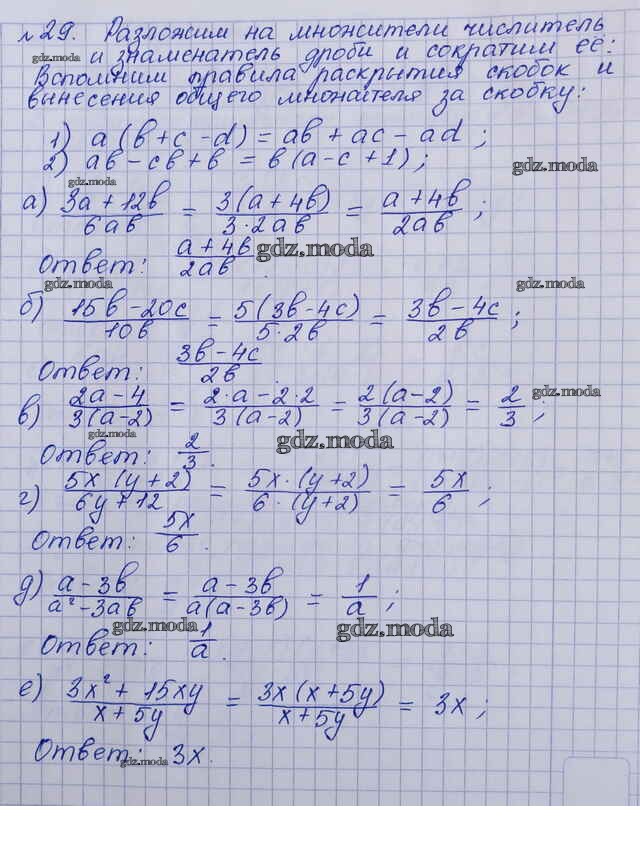 №29. Разложим на множители числитель
и знаменатель дроби и сократим её:
Вспомним правила раскрытия скобок и
вынесения общего множителя за скобку:
1) a(b+c-d) = ab + ac - ad;
2) ab - cb + b = b(a-c+1);
gdz.moda
gdz.moda
gdz.moda
а) (3a + 12b)/(6ab) = (3(a+4b))/(3·2ab) = (a+4b)/(2ab);
Ответ: (a+4b)/(2ab).
gdz.moda
gdz.moda
gdz.moda
б) (15b - 20c)/(10b) = (5(3b-4c))/(5·2b) = (3b-4c)/(2b);
Ответ: (3b-4c)/(2b).
в) (2a-4)/(3(a-2)) = (2·a-2·2)/(3(a-2)) = (2(a-2))/(3(a-2)) = 2/3;
gdz.moda
gdz.moda
gdz.moda
Ответ: 2/3.
г) (5x(y+2))/(6y+12) = (5x·(y+2))/(6·(y+2)) = 5x/6;
Ответ: 5x/6.
д) (a-3b)/(a²-3ab) = (a-3b)/(a(a-3b)) = 1/a;
gdz.moda
gdz.moda
Ответ: 1/a.
е) (3x²+15xy)/(x+5y) = (3x(x+5y))/(x+5y) = 3x;
Ответ: 3x.
gdz.moda